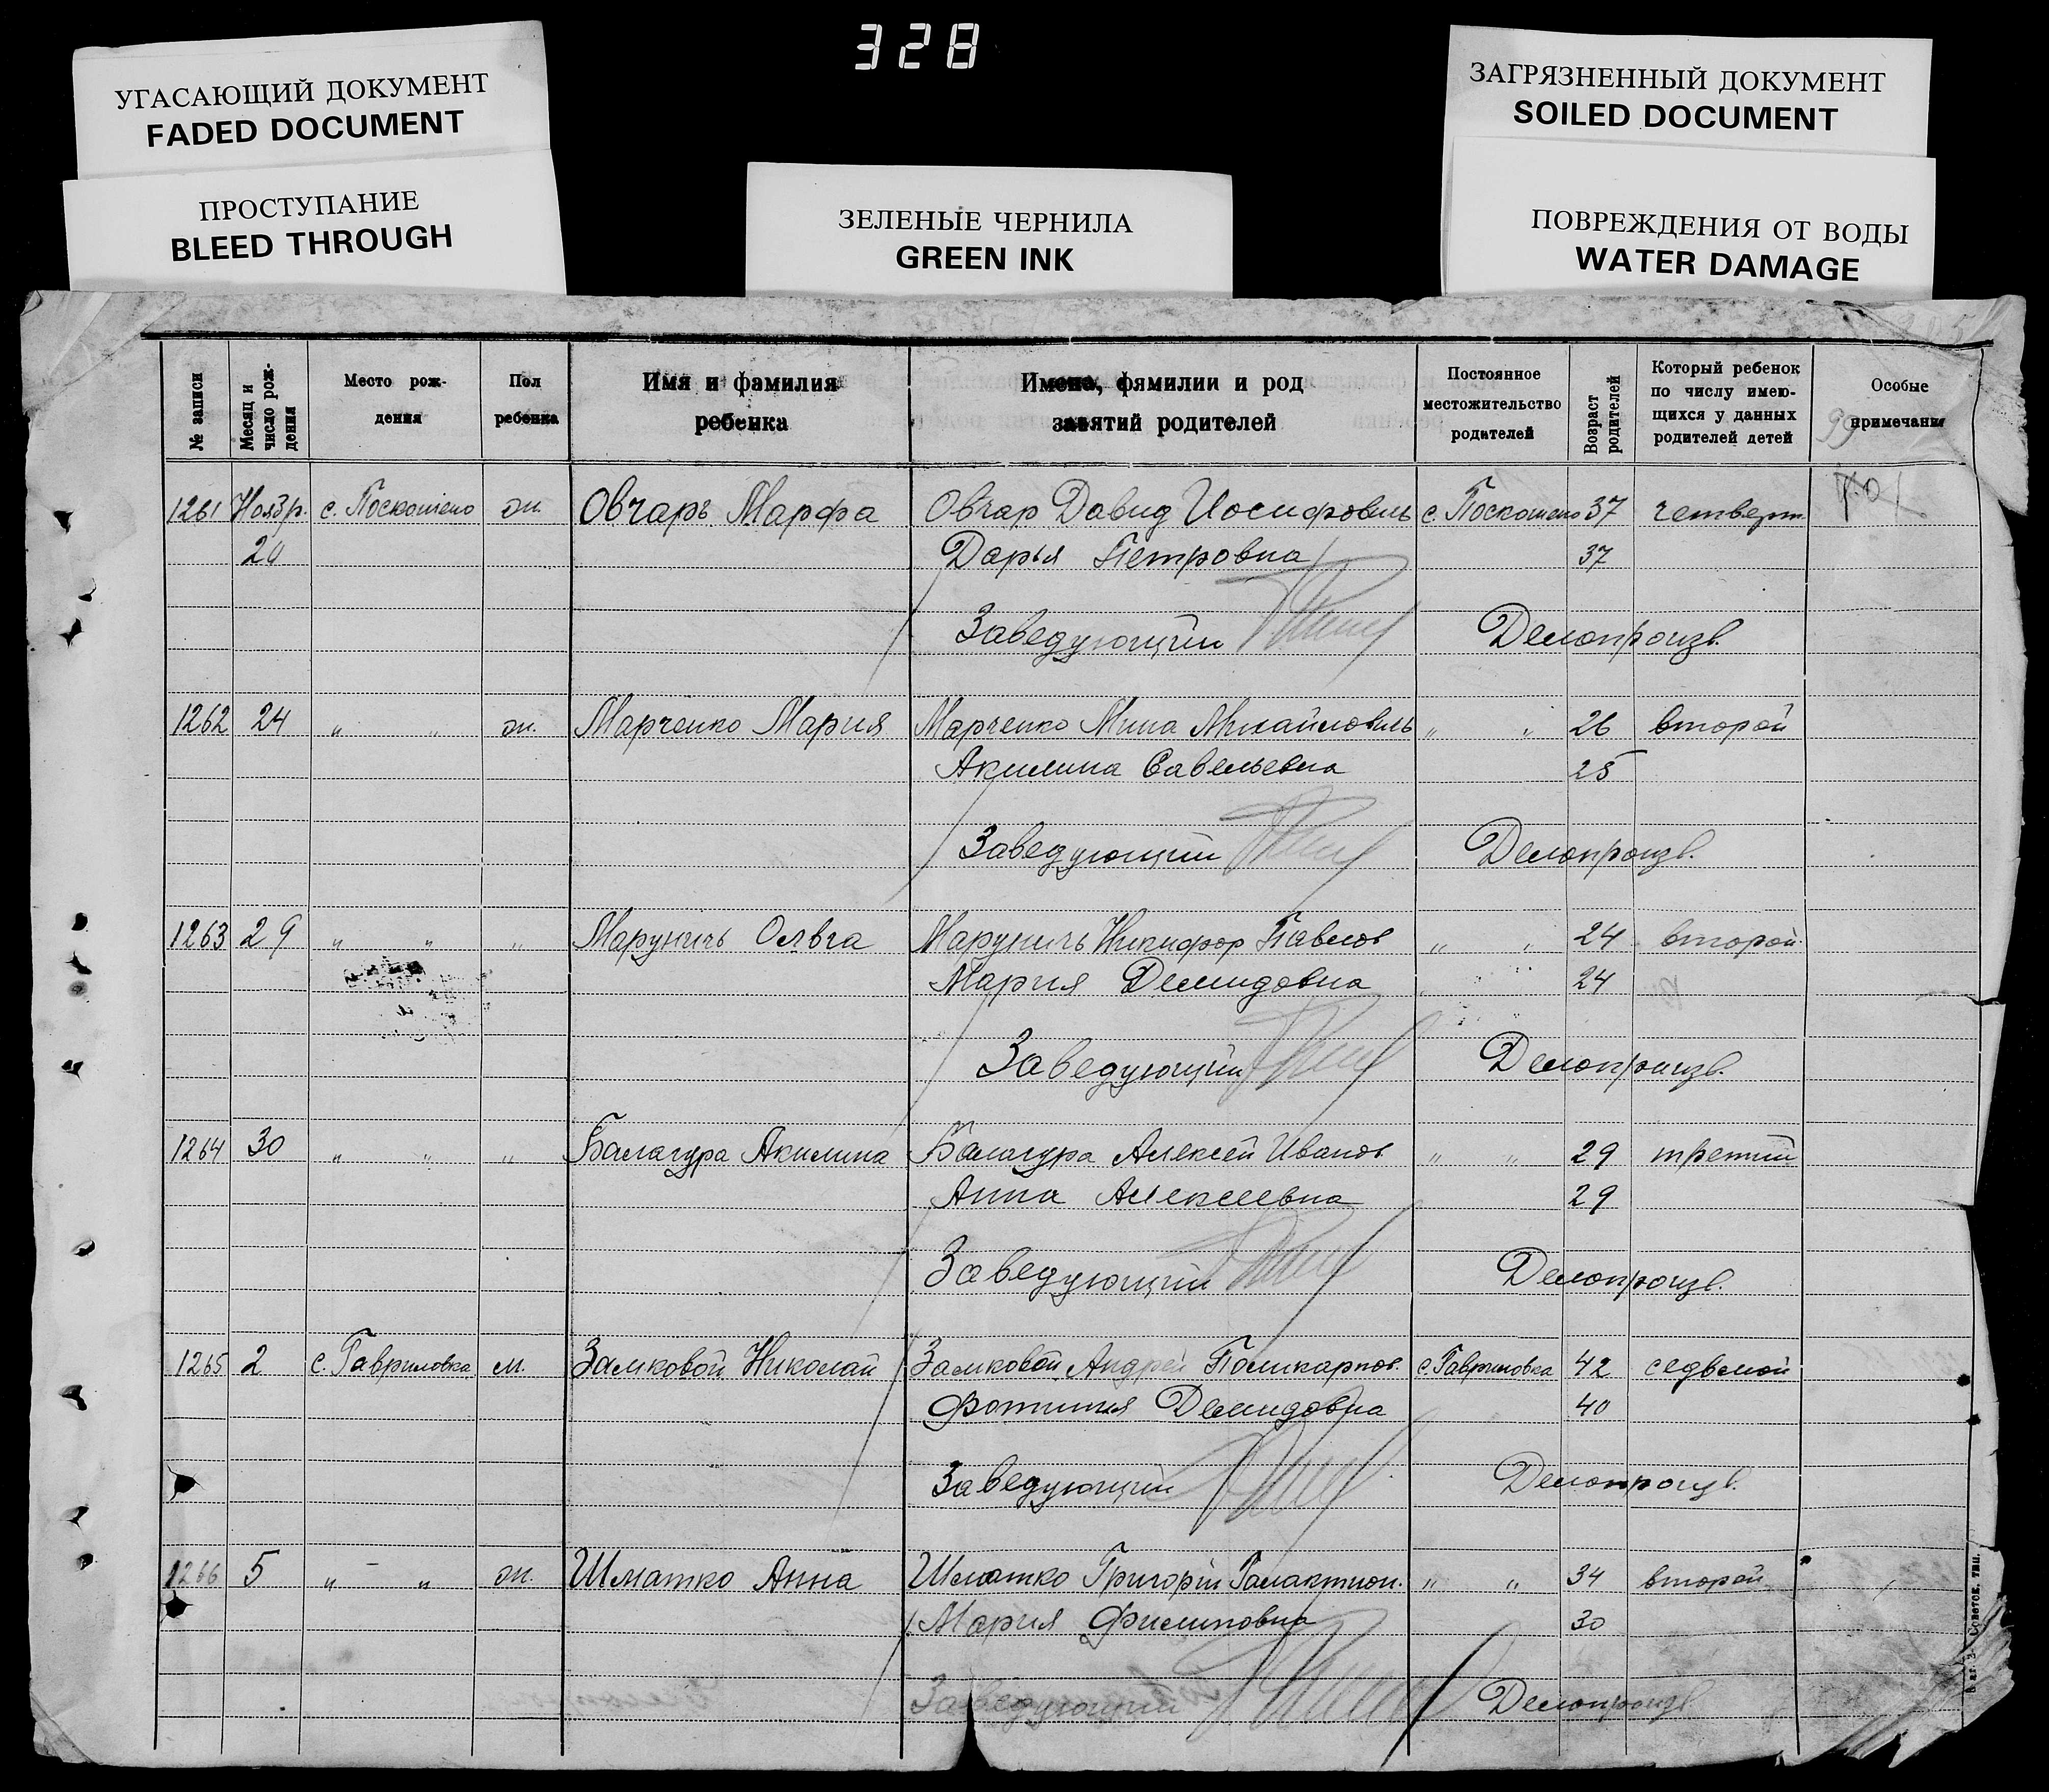 328
УГАСАЮЩИЙ ДОКУМЕНТ
FADED DOCUMENT
ПРОСТУПАНИЕ
BLEED THROUGH
ЗЕЛЕНЫЕ ЧЕРНИЛА
GREEN INK
ЗАГРЯЗНЕННЫЙ ДОКУМЕНТ
SOILED DOCUMENT
ПОВРЕЖДЕНИЯ ОТ ВОДЫ
WATER DAMAGE
№ записи
Месяц и число рож-дения
Место рож-дения
Пол ребенка
Имя и фамилия ребенка
Имена, фямилии и род занятий родителей
Постоянное местожительство родителей
Возраст родителей
Который ребенок по числу имею-щихся у данных родителей детей
Особые примечания
99
1261 Ноябр. с. Поскошено ж. Овчарь Марфа Овчар Давид Иосифович с. Поскошено 37 четверт.
20 Дарья Петровна 37
Заведующий Делопроизв.
1262 24 " " ж. Марченко Мария Марченко Мина Михайлович " " 26 второй
Акилина Савельевна 25
Заведующий Делопроизв.
1263 29 " " " Маруничь Ольга Маруничь Никифор Павлов " " 24 второй
Мария Демидовна 24
Заведующий Делопроизв.
1264 30 " " " Балагура Акилина Балагура Алексей Иванов " " 29 третий
Анна Алексеевна 29
Заведующий Делопроизв.
1265 2 с. Гавриловка м. Замковой Николай Замковой Андрей Поликарпов. с. Гавриловка 42 седьмой
Фотиния Демидовна 40
Заведующий Делопроизв.
1266 5 " " ж. Шматко Анна Шматко Григорій Галактион. " " 34 второй
Мария Филиповна 30
Заведующий Делопроизв.